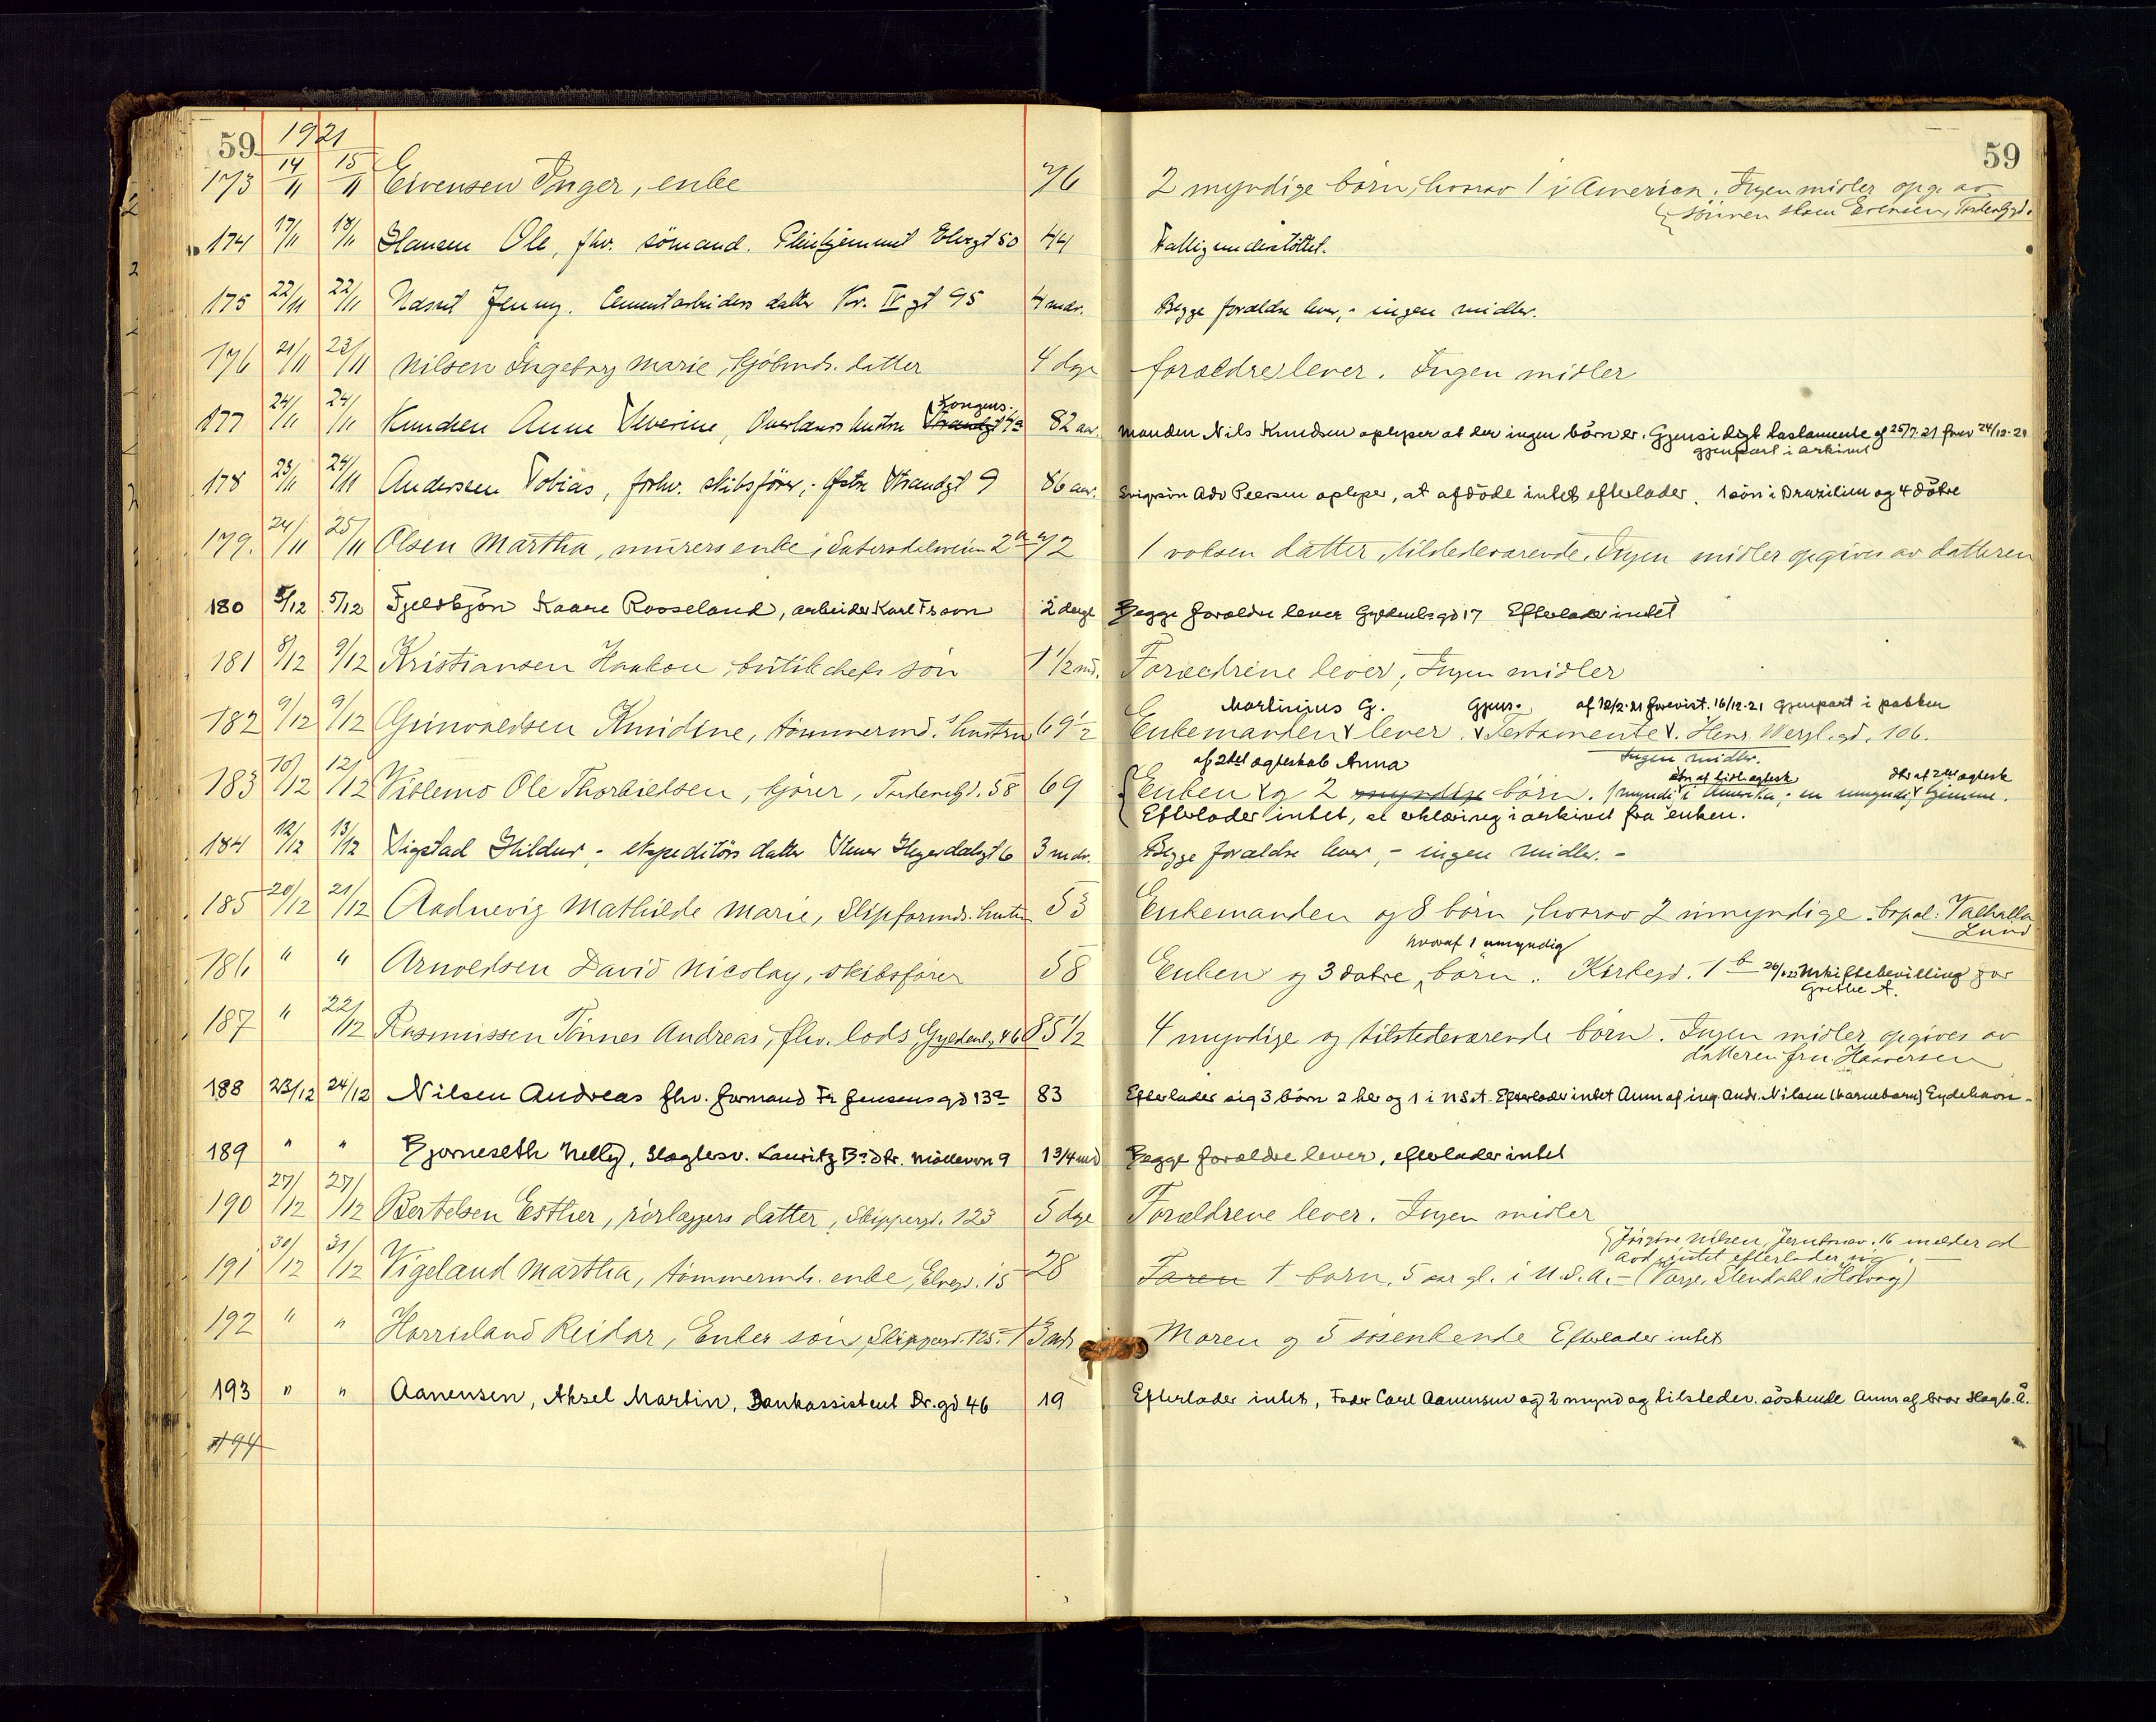 59 1921 59
173 14/11 15/11 Eivensen Inger, enke 76 2 myndige børn, hvorav 1 i Amerika. Ingen midler opg. av
sønnen
174 17/11 18/11 Hansen Ole, fhv. sömand. Pleiehjemmet Elvegt 50 44 Fattigunderstöttet.
175 22/11 22/11 Jenny. Cementarbeiders datter Kr. IV gt 95 4 mdr. Begge forældre lever, - ingen midler.
176 21/11 23/11 Nilsen Ingeborg Marie, kjøbmds. datter 4 dge forældre lever. Ingen midler
177 24/11 24/11 Knudsen Anne Severine, hustru Kongens. Strandgt 82 aar. Manden Nils Knudsen oplyser at der ingen börn er. Gjensidigt testamente af 25/7.21 24/12.21
gjenpart i arkivet
178 23/11 24/11 Andersen Tobias, forhv. skibsförer, - Østre Strandgt 9 86 aar. Svigersön Adv Peersen oplyser, at afdöde intet efterlader. 1 sön i Brazilien og 4 dötre
179. 24/11 25/11 Olsen Martha, murers enke, Sætersdalsveien 2 a 72 1 voksen datter, tilstedeværende. Ingen midler opgives av datteren
180 5/12 5/12 Fjeldskjön Kaare Rosseland, arbeider Karl Fs sön 2 dage Begge forældre lever Gyldenl.gd 17 Efterlader intet
181 8/12 9/12 Kristiansen Haakon, butikchefs søn 1 1/2 md. Forældrene lever, Ingen midler
Martinius G. Gjens. af 12/2.21 forevist. 16/12.21 gjenpart i pakken
182 9/12 9/12 Grimvaldsen Knudine, tømmermd.s hustru 69 1/2 Enkemanden lever. Testamente. Henr. Wergl.gd. 106.
af 2det ægteskab Anna Ingen midler.
183 10/12 12/12 Vislemo Ole Thorkielsen, kjører, Tordenskj.gd. 58 69 Enken og 2 myndige børn. 1 myndig i Amerika, en umyndig hjemme.
Efterlader intet, se erklæring i arkivet fra enken.
184 12/12 13/12 Vigstad Hildur, - ekspeditörs datter 6 3 mdr. Begge forældre lever, - ingen midler. -
185 20/12 21/12 Aadnevig Mathilde Marie, Slipformds. hustru 53 Enkemanden og 8 børn, hvorav 2 umyndige. bopæl: Valhalla
Lund
hvoraf 1 umyndig
186 " " Arnoldsen David Nicolay, skibsfører 58 Enken og 3 døtre, børn. Kirkegd. 1 b Uskiftebevilling for
Grethe A.
187 " 22/12 Rasmussen Tønnes Andreas, fhv. lods, Gyldenl. 46 85 1/2 4 myndige og tilstedeværende børn. Ingen midler opgives av
datteren fru Haaversen
188 23/12 24/12 Nilsen Andreas fhv. formand Fr Jensens gd 13a 83 Efterlader sig 3 börn 2 her og 1 i U S A. Efterlader intet Anm af ing. Andr. Nilsen (barnebarn) Eydehavn.
189 " " Bjorneseth Nelly, Slagtersv. Lauritz Bs dtr. Mölleven 9 1 3/4 md Begge forældre lever, efterlader intet
190 27/12 27/12 Bertelsen Esther, rørlæggers datter, Skippergd. 123 5 dge Forældrene lever. Ingen midler
Nilsen, 16 melder at
avd. intet efterlader sig. -
191 30/12 31/12 Vigeland Martha, tømmermds. enke, Elvegd. 15 28 Faren 1 barn, 5 aar gl. i U.S.A. - (Værge. Stendahl i Høvaag)
192 " " Harrisland Reidar, Enkes søn, Skippergd. 125. 13 mdr Moren og 5 søskende Efterlader intet
193 " " Aanensen, Aksel Martin, Bankassistent Dr.gd 46 19 Efterlader intet, Fader Carl Aanensen og 2 mynd og tilsteder. söskende Anm af bror A.
194